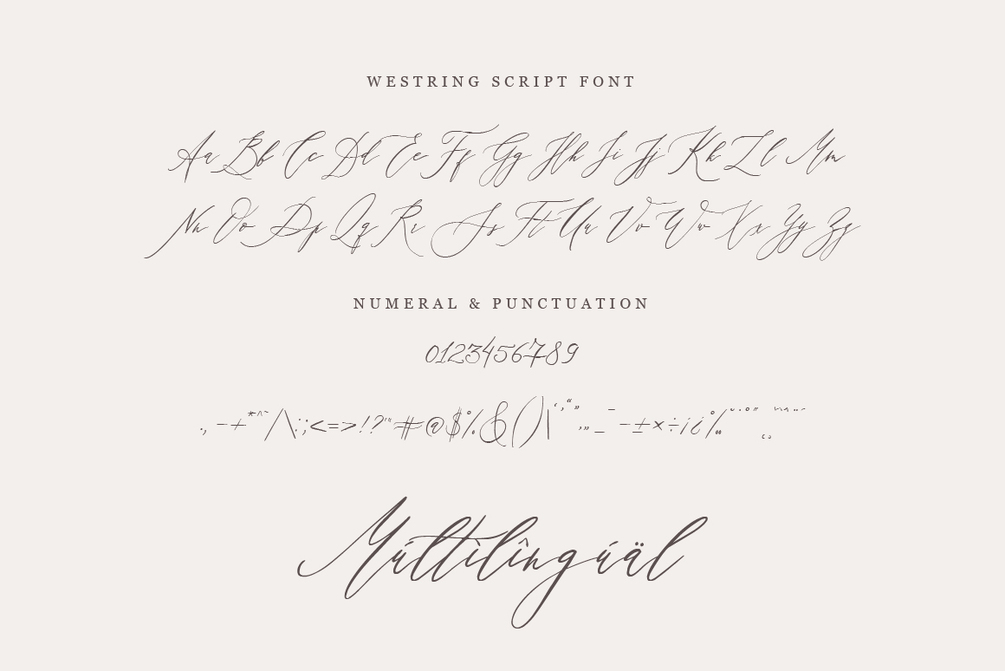 WESTRING SCRIPT FONT
Aa Bb Cc Dd Ee Ff Gg Hh Ii Jj Kk Ll Mm
Nn Oo Pp Qq Rr Ss Tt Uu Vv Ww Xx Yy Zz
NUMERAL & PUNCTUATION
0123456789
., -+*^~/\:;<=>!?"'#@$%&()|‘,“”„…_¯–±×÷¡¿‰
Múltìlîngúäl